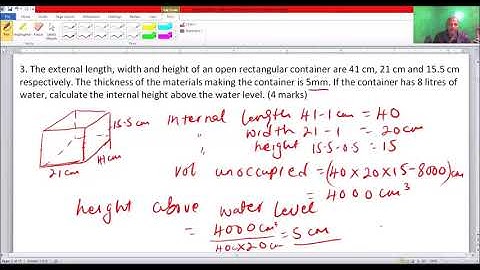 3. The external length, width and height of an open rectangular container are 41 cm, 21 cm and 15.5 cm
respectively. The thickness of the materials making the container is 5mm. If the container has 8 litres of
water, calculate the internal height above the water level. (4 marks)
internal length 41-1 cm = 40
" width 21-1 = 20cm
" height 15.5-0.5 = 15
15.5 cm
41cm
21cm
Vol unoccupied = (40×20×15-8000)cm
= 4000 cm³
height above water level
= 4000cm³ / 40c×20cm = 5 cm